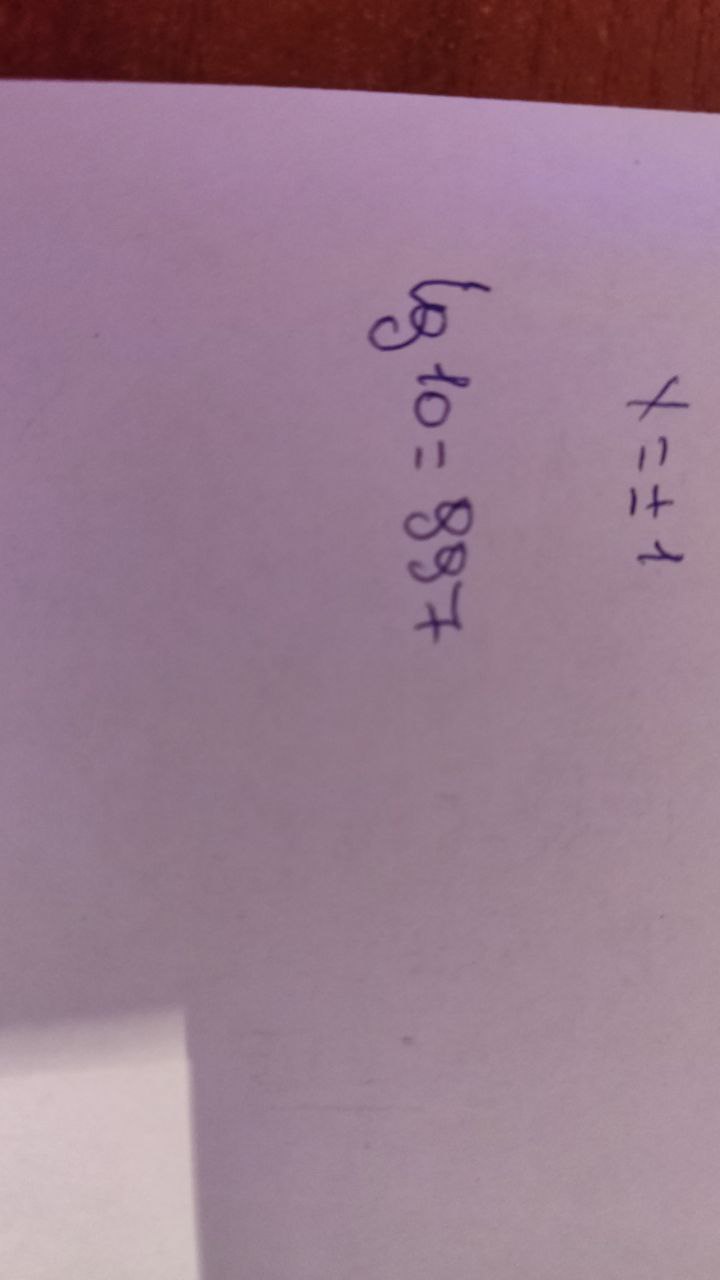 x = ± 1
log 10 = 887